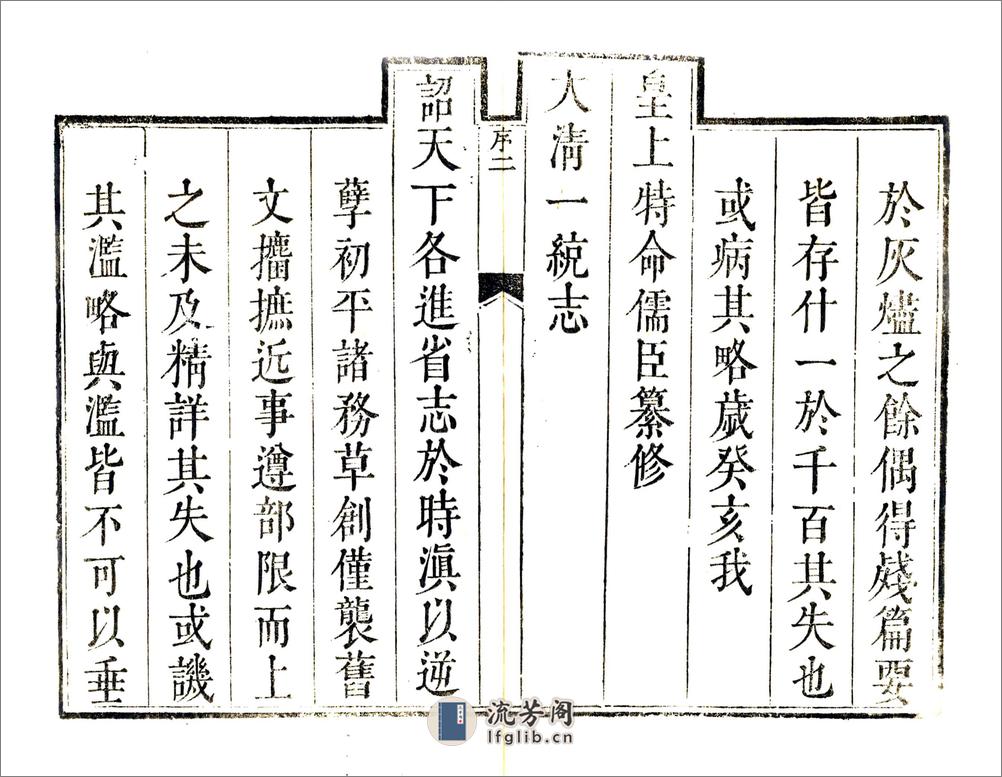 於灰燼之餘偶得殘篇要
皆存什一於千百其失也
或病其略歲癸亥我
皇上特命儒臣纂修
大淸一統志
序二
詔天下各進省志於時滇以逆
孽初平諸務草創僅襲舊
文擂摭近事遵部限而上
之未及精詳其失也或譏
其濫略與濫皆不可以垂
流芳阁
lfglib.cn